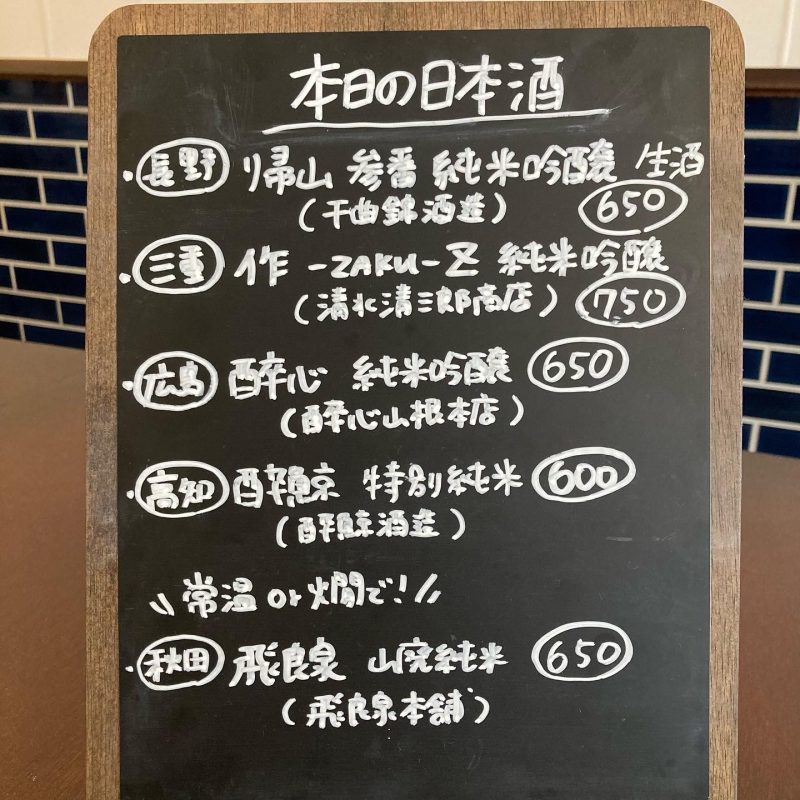 本日の日本酒
・長野 帰山 参番 純米吟醸 生酒
(千曲錦酒造) 650
・三重 作 -ZAKU- Z 純米吟醸
(清水清三郎商店) 750
・広島 酔心 純米吟醸 650
(酔心山根本店)
・高知 酔鯨 特別純米 600
(酔鯨酒造)
\\常温or燗で!//
・秋田 飛良泉 山廃純米 650
(飛良泉本舗)